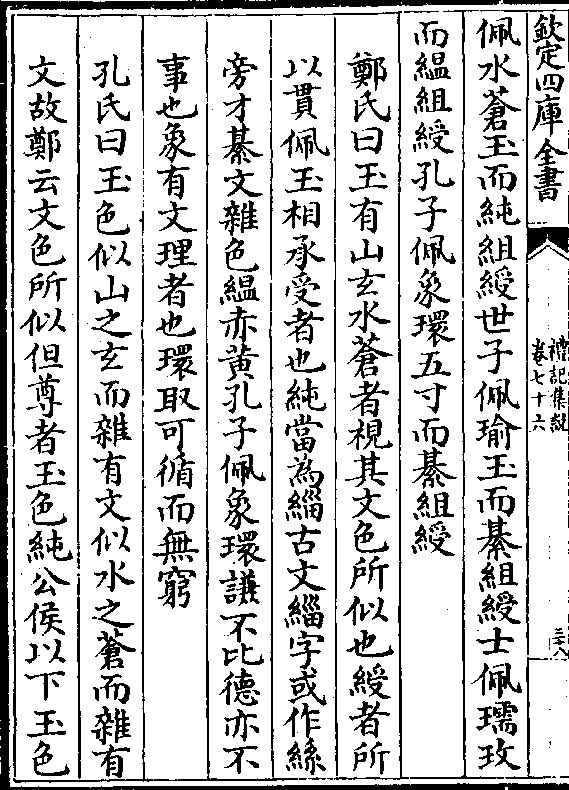 欽定四庫全書
禮記集說
卷七十六
三八
佩水蒼玉而純組綬世子佩瑜玉而綦組綬士佩瓀玟
而緼組綬孔子佩象環五寸而綦組綬
鄭氏曰玉有山玄水蒼者視其文色所似也綬者所
以貫佩玉相承受者也純當為緇古文緇字或作絲
旁才綦文雜色緼赤黃孔子佩象環謙不比德亦不
事也象有文理者也環取可循而無窮
孔氏曰玉色似山之玄而雜有文似水之蒼而雜有
文故鄭云文色所似但尊者玉色純公侯以下玉色